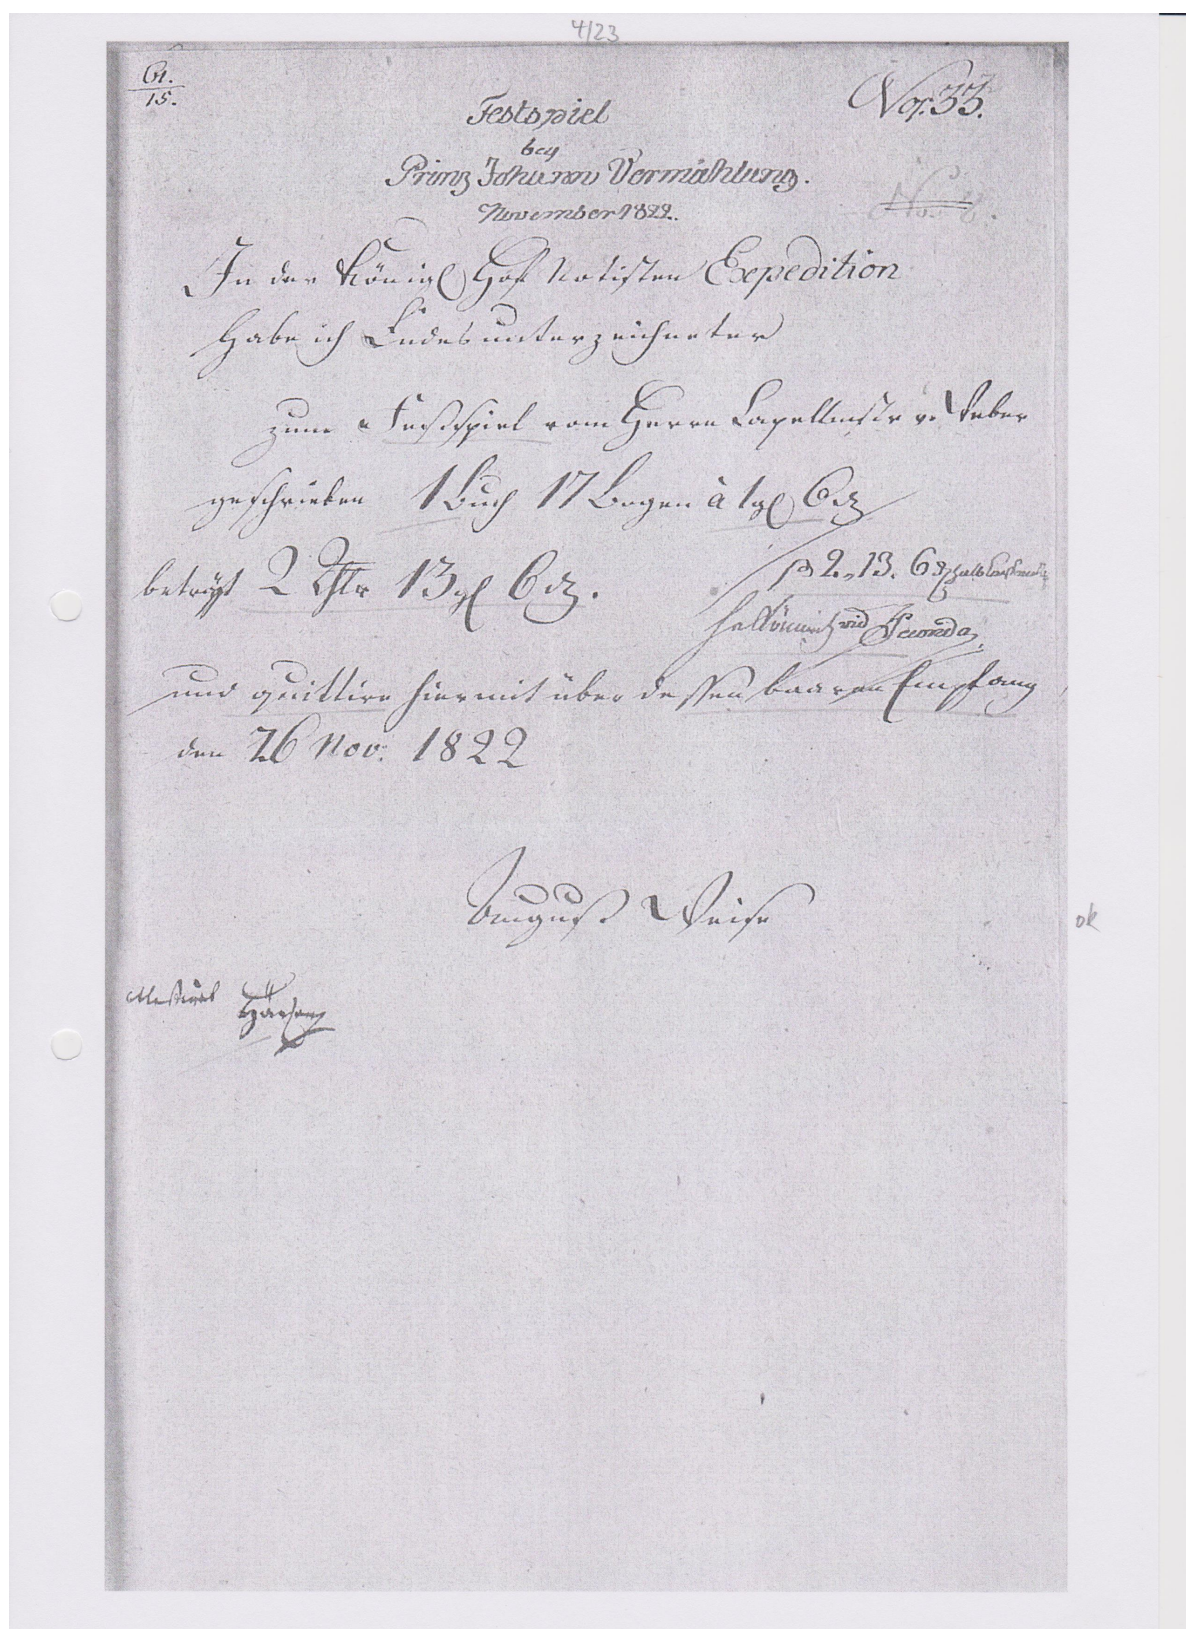 4/23
61.
15.
No. 33.
Festspiel
bey
Prinz Johann Vermählung.
November 1822.
No. 8.
In der Königl Hof Notisten Expedition
Habe ich Endes unterzeichneter
zum Festspiel vom Herrn Capellmstr v. Weber
geschrieben 1 Buch 17 Bogen à 1 gl 6 d
beträgt 2 Thlr 13 gl 6 d.
2. 13. 6
und Secunda
und quittire hiermit über dessen baaren Empfang
den 26 Nov: 1822
August Weise
ok
Attestirt